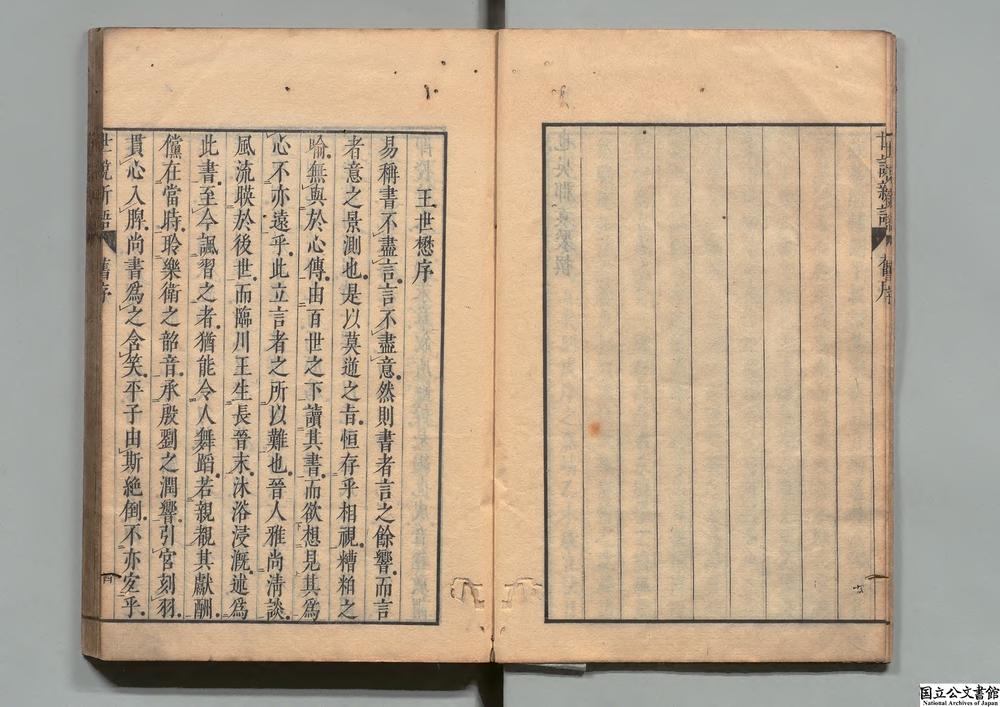 世説新語
舊序
王世懋序
易稱書不盡言言不盡意然則書者言之餘響而言
者意之景測也是以莫逆之旨恒存乎相視糟粕之
喻無與於心傳由百世之下讀其書而欲想見其爲
心不亦遠乎此立言者之所以難也晉人雅尚淸談
風流暎於後世而臨川王生長晉末沐浴浸漑述爲
此書至今諷習之者猶能令人舞蹈若親覩其獻酬
儻在當時聆樂衛之韶音承殷劉之潤響引宮刻羽
貫心入脾尚書爲之含笑平子由斯絶倒不亦宐乎
世說新語
舊序
国立公文書館
National Archives of Japan